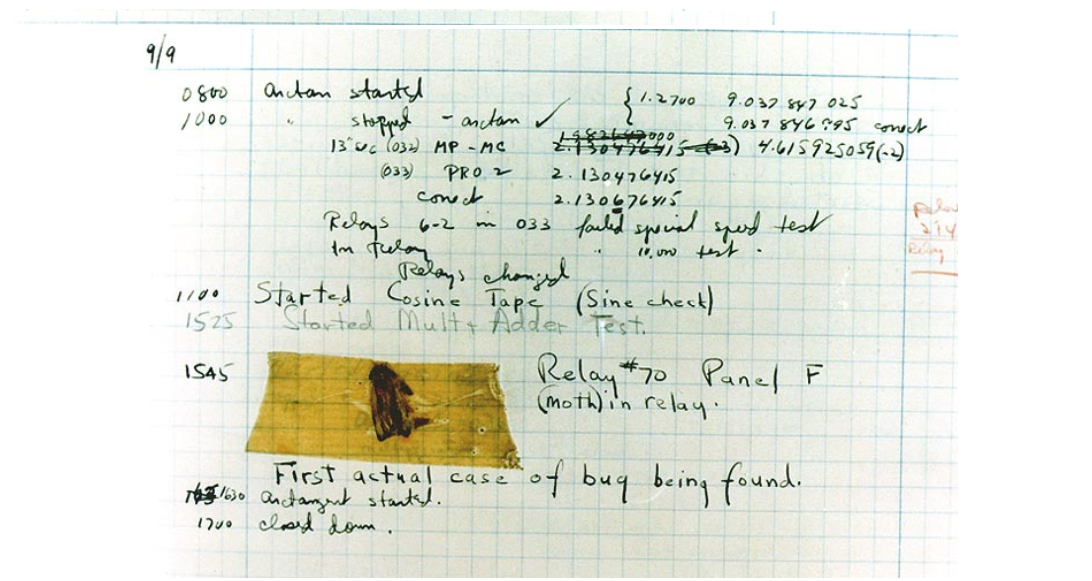 9/9
0800 arctan started { 1.2700 9.037 847 025
1000 " stopped - arctan ✓ 9.037 846 995 correct
13" sec (032) MP - MC 1.982647000 2.130476415 (-3) 4.615925059(-2)
(033) PRO 2 2.130476415
correct 2.130676415
Relays 6-2 in 033 failed special speed test
In relay " 10,000 test .
Relays changed
1100 Started Cosine Tape (Sine check)
1525 Started Mult + Adder Test.
1545 Relay #70 Panel F
(moth) in relay.
First actual case of bug being found.
1630 arctangent started.
1700 closed down .
Relay
Relay